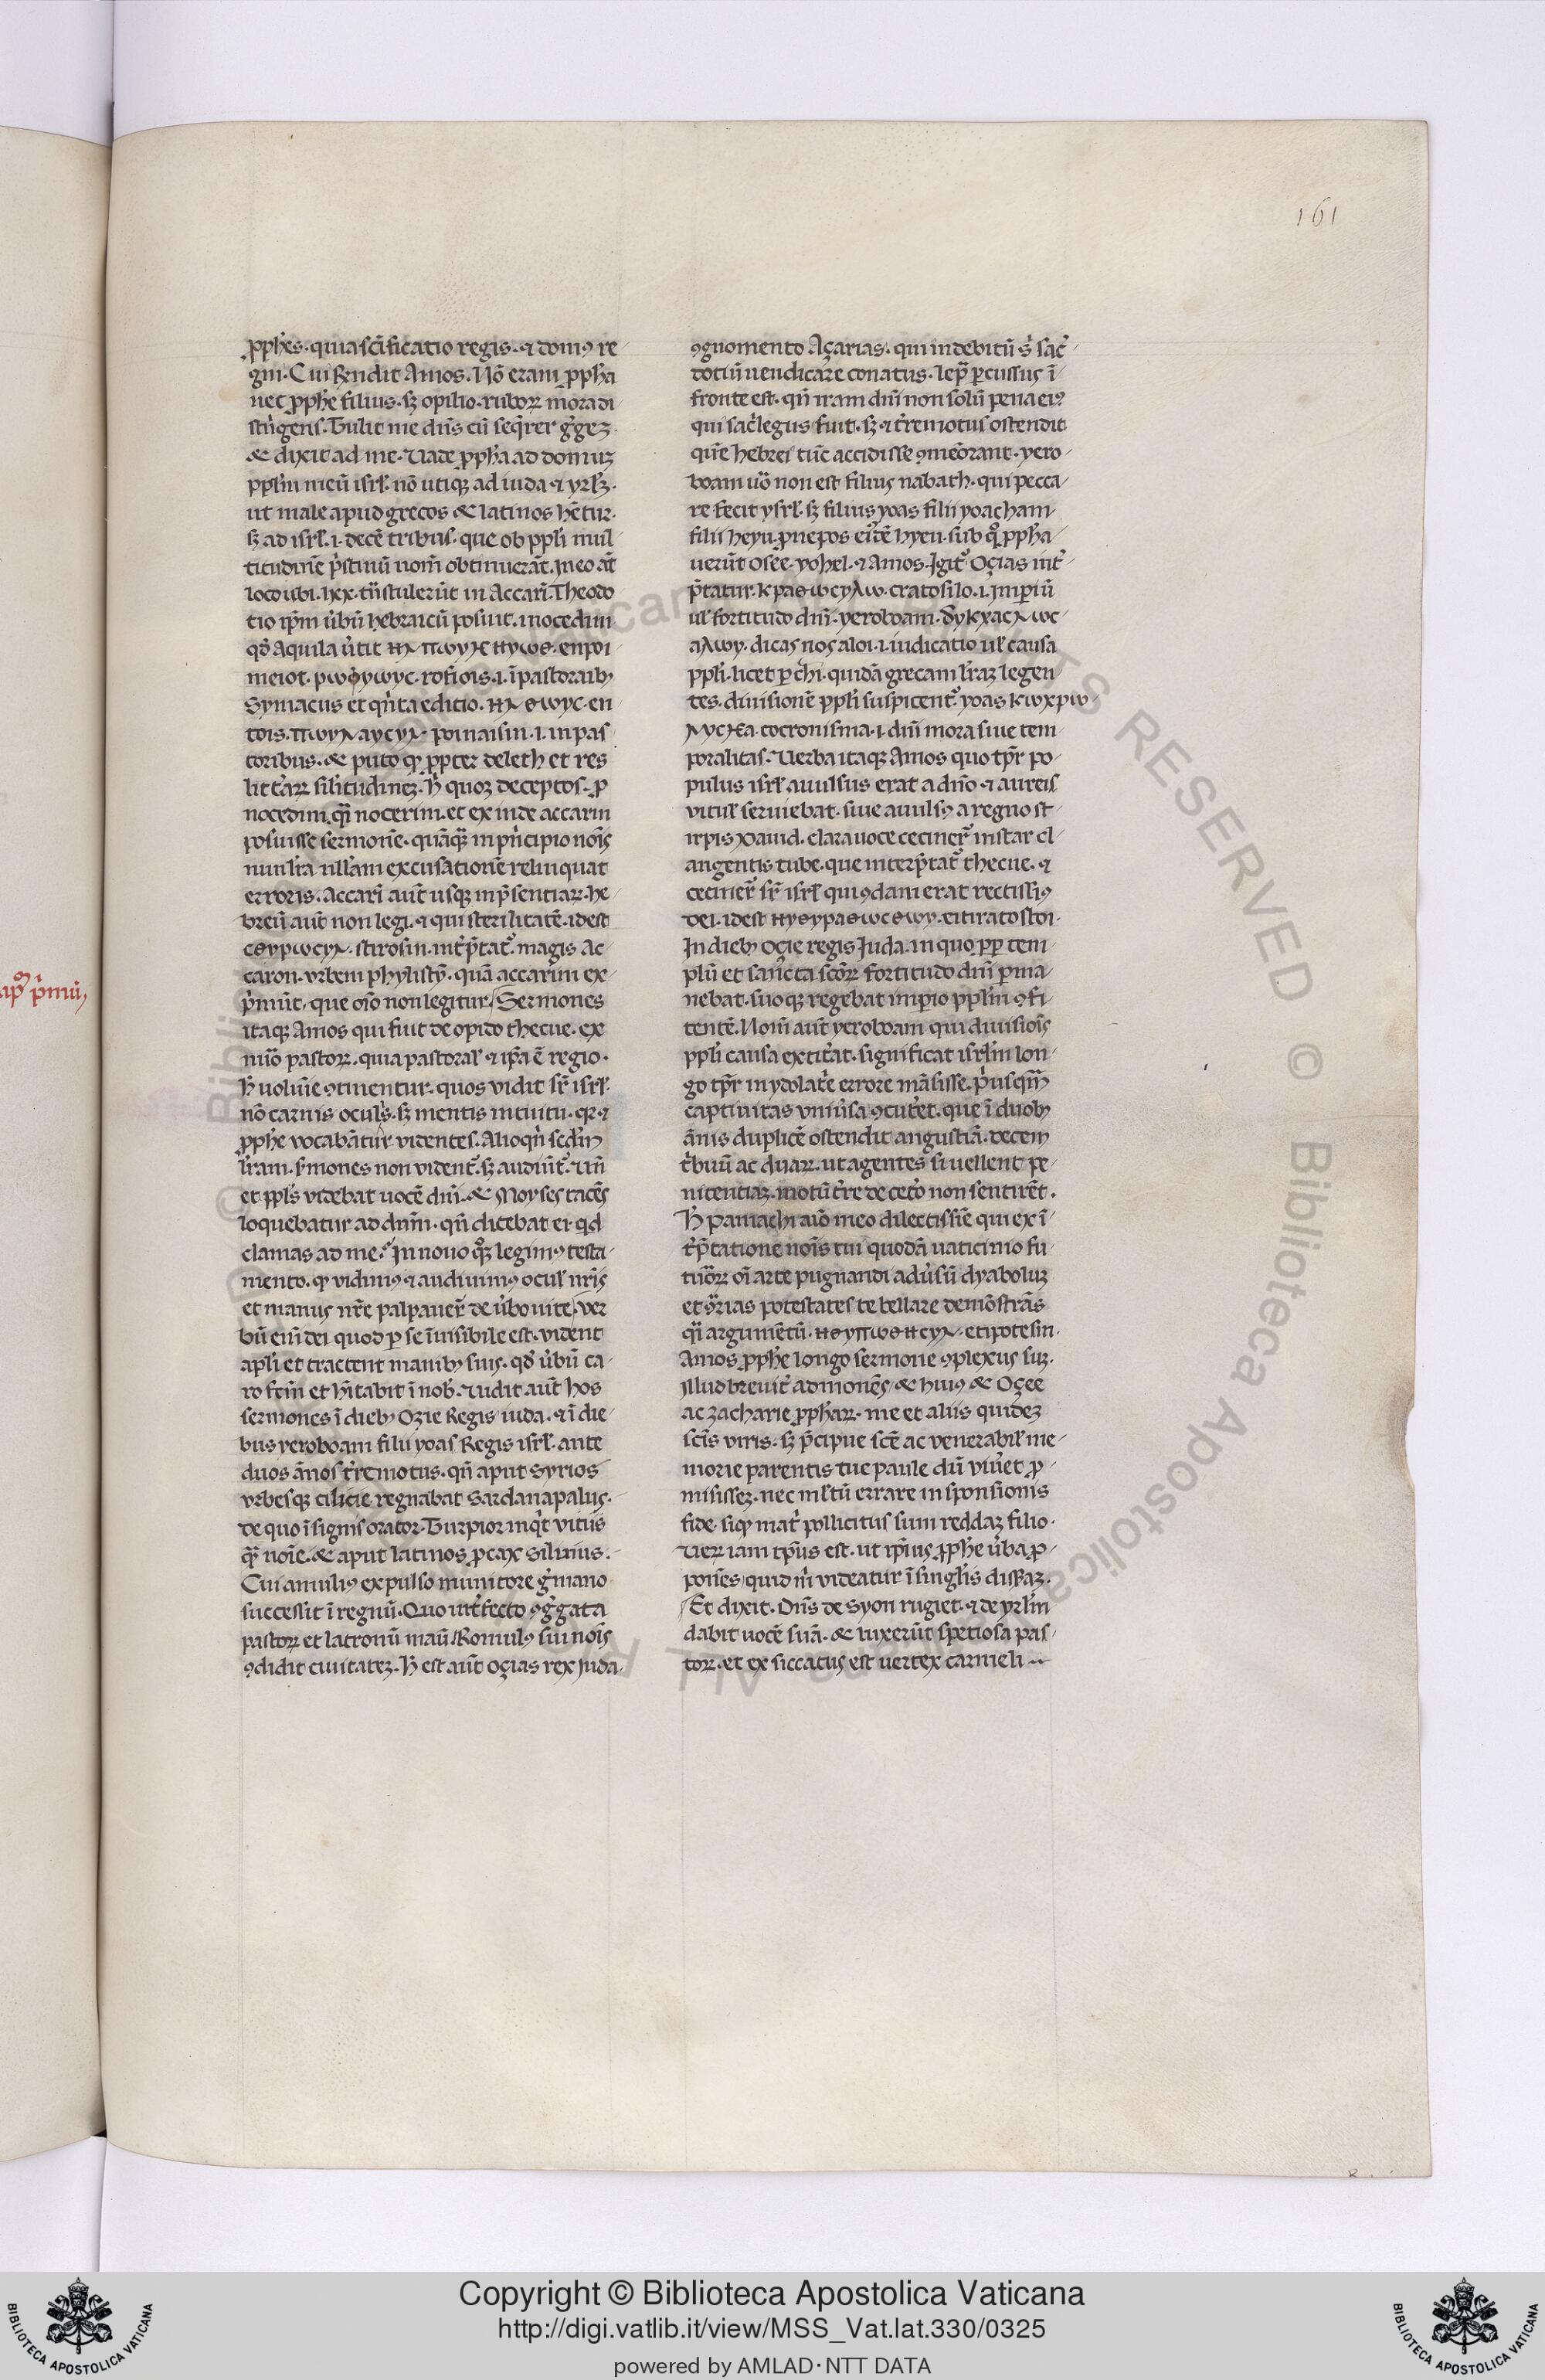 161
ꝓph̅es · quia sc̅ificatio regis · ⁊ domꝰ re
gni · Cui Rendit Amos . Nō eram ꝓph̅a
nec ꝓph̅e filius · sꝫ opilio · ruboꝝ mora di
strĩgens . Tulit me dn̅s cū seq̃rer g̃geꝫ ·
& dixit ad me · Uade ꝓph̅a ad domuꝫ
ppl̅m meū isrl̅ · nō utiqꝫ ad iuda · ⁊ yrl̅ꝫ ·
ut male apud grecos & latinos he̅tur ·
sꝫ ad isrl̅ · i · decē tribus · que ob ppl̅i mul
titudinē p̃stinū nom̅ obtinuerāt . In eo āt
loco ubi · lxx · tñstulerūt in Accarĩ . Theodo
tio ip̅m ũbū hebraicū posuit · inocedim
qd̅ Aquila ũtit
meiot · rofiois · i · ī pastoraibꝫ
Symacus et qñta editio · en
tois · poimaisin · i · in pas
toribus · & puto qꝫ ꝓpter deleth et res
litt̃aꝝ sil̅itudineꝫ · h̅ quoꝫ deceptos · ꝓ
nocedim · qi̅ nocerim · et exinde accarin
posuisse sermonē · quāq̃ꝫ in p̃ncipio noi̅s
nun lr̅a null̅am excusationē relinquat
erroris . Accarĩ aūt usqꝫ in p̃sentiaꝝ · he
breū aūt non legi · ⁊ qui sterilitatē · idest
stirosin · int̃p̃tat᷑ · magis Ac
caron · urbem phylistỹ · quā accarim ex
p̃mūt · que oīo non legitur . Sermones
itaqꝫ Amos qui fuit de opido thecue · ex
nu̅o pastoꝝ · quia pastoral̅ · ⁊ ip̅a ē regio ·
h̅ uolu̅ie ꝯtinentur · quos vidit sr̅ isrl̅ ·
nō carnis ocul̅s · sꝫ mentis intuitu · qꝛ ⁊
ꝓph̅e vocabāt̃r videntes . Alioqñ sed̃m
lr̅am · s̃mones non vident᷑ · sꝫ audiūt᷑ . Uñ
et ppl̅s videbat uocē dn̅i · & Moyses tacēs
loquebatur ad dn̅m · qñ dicebat ei · qd
clamas ad me . In nouo qͦqꝫ legimꝰ testa
mento · qꝫ vidimꝰ ⁊ audiuimꝰ ocul̅ nr̅is
et manus nr̅e palpauer̅ de ũbo uite · ver
bū eni̅ dei quod ꝑ se īuisibile est · vident
apl̅i et tractent manibꝫ suis · qd̅ ũbū ca
ro fc̅m et h̅itabit ī nob̅ · Uidit aūt hos
sermones ī diebꝫ Ozie Regis iuda · ⁊ ī die
bus yeroboam filii yoas Regis isrl̅ · ante
duos ānos t̃remotus · qñ aput syrios
urbesqꝫ cilicie regnabat Sardanapalus ·
de quo īsignis orator · Turpior inq̃t vitiis
q̃ꝫ noi̅e · & aput latinos ꝓcax siluius ·
Cui amulius expulso munitore g̃mano
successit ī regnū . Quo int̃fecto ꝯg̃gata
pastoꝝ et latronū manū Romulꝰ sui noi̅s
ꝯdidit ciuitateꝫ . h̅ est aūt oçias rex Juda
ꝯgnomento Açarias · qui indebitū s̅ sac̃
dotiū uendicare conatus · lep̃ ꝑcussus ī
fronte est · qñ iram dn̅i non solū pena eiꝰ
qui sac̃legus fuit · sꝫ ⁊ t̃remotus ostendit
que̅ hebrei tūc accidisse ꝯmeōrant · yero
boam u̅o non est filius nabath · qui pecca
re fecit ysrl̅ · sꝫ filius yoas filii yoacham
filii heyu · ꝓnepos eide̅ hyeu · sub qͦ ꝓpha
uerūt Osee · yohel · ⁊ Amos . Igit᷑ Oçias int̃
p̃tatur . cratosilo · i · Imꝑiū
ul̅ fortitudo dn̅i · yeroboam ·
dicasnosaloi · i · iudicatio ul̅ causa
ppl̅i · licet ꝑ chi · quidā grecam lr̅aꝫ legen
tes · diuisionē ppl̅i suspicent᷑ · yoas
cocronisma · i · dn̅i mora siue tem
poralitas . Uerba itaqꝫ Amos quo tꝑr̅ po
pulus isrl̅ auulsus erat a dn̅o · ⁊ aureis
vitul̅ seruiebat · siue auulsꝰ a regno st
irpis Dauid · clara uoce ceciner̅ instar cl
angentis tube · que interp̃tat᷑ thecue · ⁊
ceciner̅ sr̅ isrl̅ qui ꝯdam erat rectissi̅ꝰ
dei · idest eitiratostoi ·
In diebꝫ oçie regis Juda · in quo ꝓp̅ tem
plū et sancta sc̅oꝝ fortitudo dn̅i ꝑma
nebat · suoqꝫ regebat imꝑio ppl̅m ꝯfi
tentē . Nom̅ aūt yeroboam qui diuisioi̅s
ppl̅i causa extit̃at · significat isrl̅m lon
go tꝑr̅ in ydolat̃e errore māsisse · p̃usq̃ꝫ
captiuitas uniũsa ꝯcut̃et · que ī duobꝫ
ānis duplicē ostendit angustiā · decem
t̃buū ac duaꝝ · ut agentes si uellent pe
nitentiaꝫ · motū t̃re de cet̃o non sentirēt .
h̅ Pamachi aīo meo dilectissi̅e qui ex ī
t̃p̃tatione noi̅s tui quodā uaticinio fu
tũoꝝ oi̅ arte pugnandi adũsū dyaboluꝫ
et ꝯ̃rias potestates te bellare demōstrās
qi̅ argum̅tū · etipotesin ·
Amos ꝓph̅e longo sermone ꝯplexus suꝫ ·
illud breuit̃ admonēs · & huiꝰ & Oçee
ac zacharie ꝓphaꝝ · me et aliis quideꝫ
sc̅is viris · sꝫ p̃cipue sc̅e ac venerabil̅ me
morie parentis tue paule dū viũet ꝓ
misisseꝫ · nec ml̅tū errare in sponsionis
fide · siqꝫ mat̃ pollicitus sum reddaꝫ filio ·
Ueꝝ iam tp̅us est · ut ip̅ius ꝓph̅e ũba ꝓ
pone̅s quid m̅ videatur ī singl̅is disꝑaꝫ ·
Et dixit · Dn̅s de syon rugiet · ⁊ de yrl̅m
dabit uocē suā · & luxerūt spetiosa pas
toꝝ · et exsiccatus est uertex carmeli
Copyright © Biblioteca Apostolica Vaticana
http://digi.vatlib.it/view/MSS_Vat.lat.330/0325
powered by AMLAD·NTT DATA